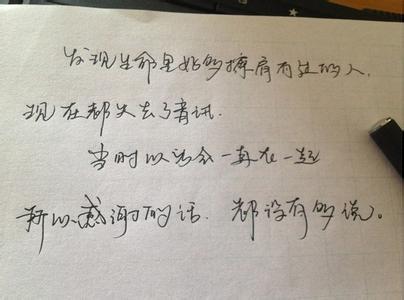 发现生命里好多擦肩而过的人，
现在都失去了音讯.
当时以为会一直在一起
所以感谢的话. 都没有多说。